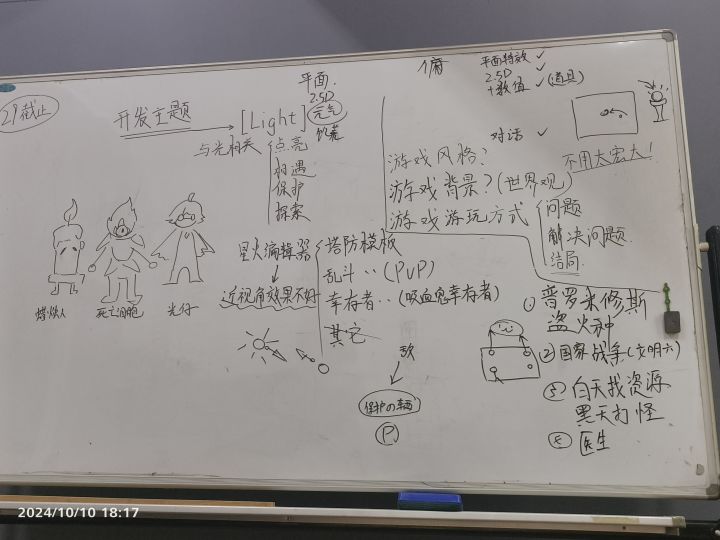 29截止
开发主题
[Light]
平面
2.5D
元气
与光相关
点亮
相遇
保护
探索
俯
平面特效 ✓
2.5D ✓
+数值 ✓ (道具)
对话 ✓
不用太宏大!
游戏风格?
游戏背景?(世界观)
游戏游玩方式
问题
解决问题
结局
星火编辑器
近视角效果不好
塔防模板
乱斗..(PVP)
幸存者..(吸血鬼幸存者)
其它
敌
P
蜡烛人
死亡细胞
光仔
① 普罗米修斯
盗火种
② 国家战争(文明六)
③ 白天找资源
黑天打怪
④ 医生
2024/10/10 18:17